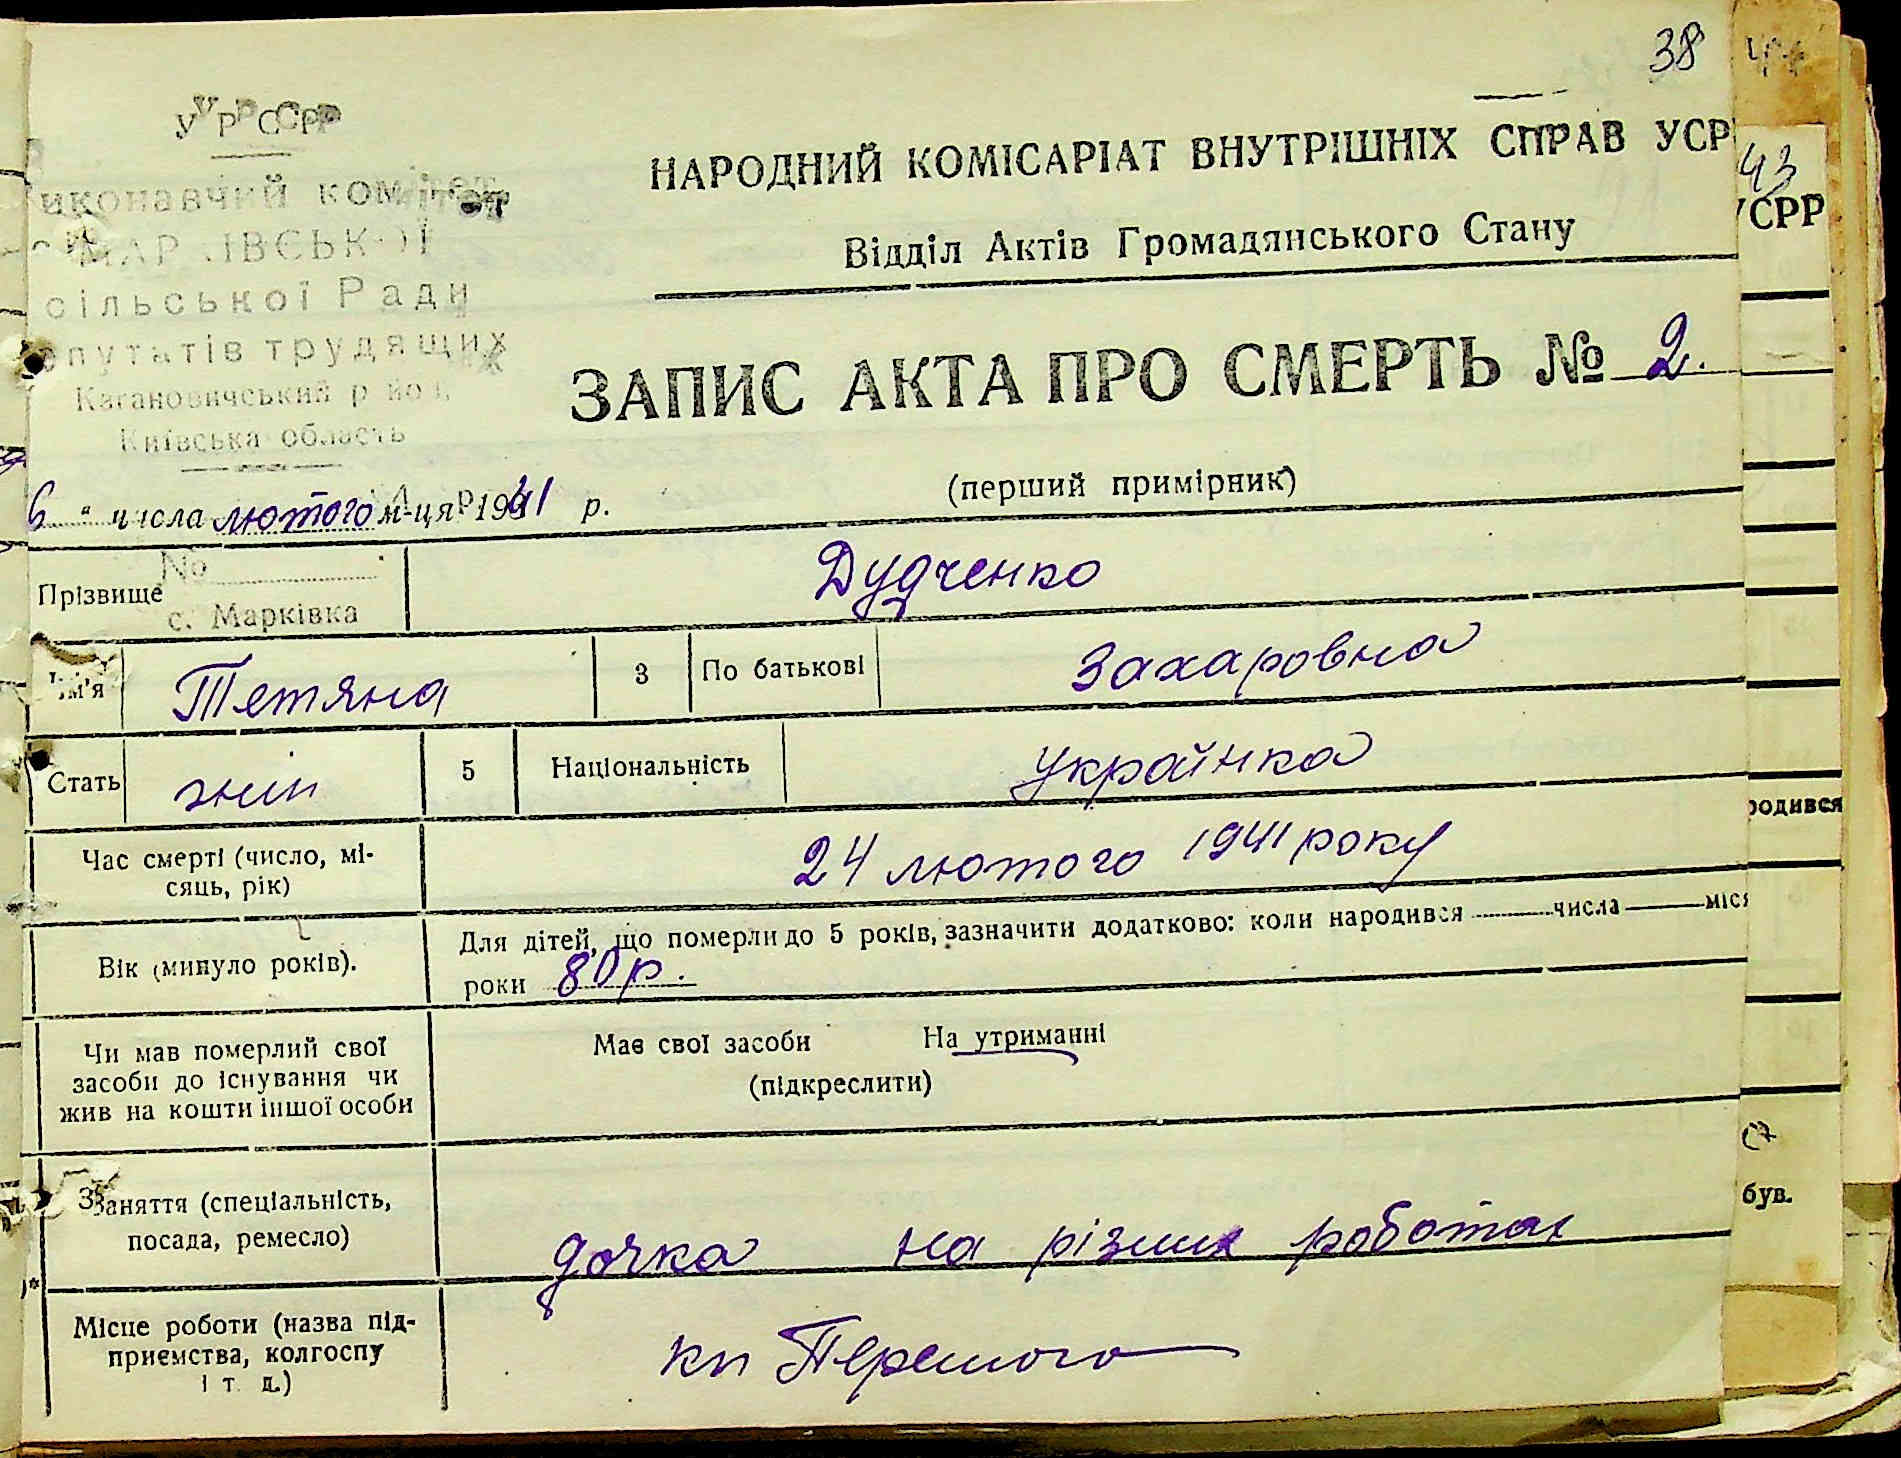 38
УРСР
иконавчий комітет
МАРКІВСЬКОЇ
сільської Ради
епутатів трудящих
Кагановичський район
Київська область
НАРОДНИЙ КОМІСАРІАТ ВНУТРІШНІХ СПРАВ УСР
43
УСРР
Відділ Актів Громадянського Стану
ЗАПИС АКТА ПРО СМЕРТЬ № 2.
(перший примірник)
6 " числа лютого м-ця 1941 р.
№
Прізвище Дудченко
с. Марківка
Ім'я Тетяна 3 По батькові Захаровна
Стать жін 5 Національність Українка
родився
Час смерті (число, мі-
сяць, рік) 24 лютого 1941 року
Вік (минуло років). Для дітей, що померли до 5 років, зазначити додатково: коли народився числа міся
роки 80 р.
Чи мав померлий свої
засоби до існування чи
жив на кошти іншої особи
Має свої засоби На утриманні
(підкреслити)
був.
Заняття (спеціальність,
посада, ремесло) дочка на різних роботах
Місце роботи (назва під-
приємства, колгоспу
і т. д.)
кп Першого